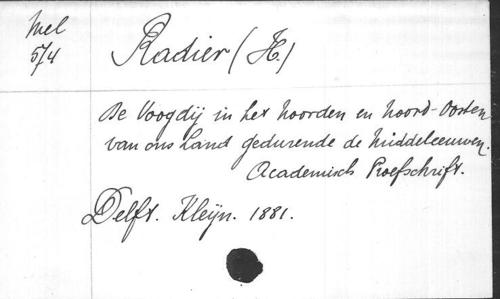 Mel
574
Radier (H.)
De Voogdij in het Noorden en Noord-Oosten
van ons Land gedurende de Middeleeuwen.
Academisch Proefschrift.
Delft. Kleijn. 1881.